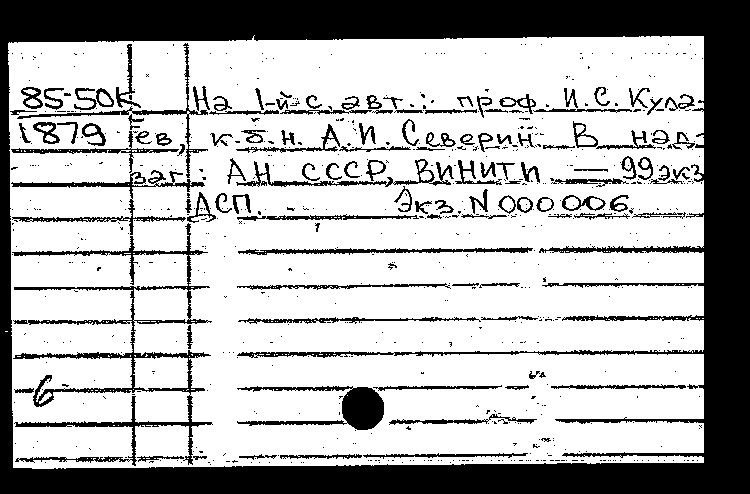 85-50к На 1-й с. авт.: проф. И.С. Кула-
1879 ев, к.б.н. А.И. Северин. В над-
заг.: АН СССР, ВИНИТИ. — 99 экз
ДСП. Экз. N 000006.
6